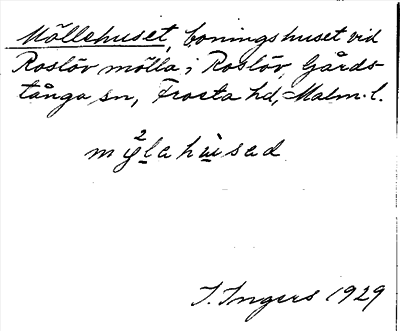 Möllehuset, boningshuset vid
Roslöv mölla i Roslöv, Gårds-
tånga sn, Frosta hd, Malm. l.
2
mølahusad
I. Ingers 1929